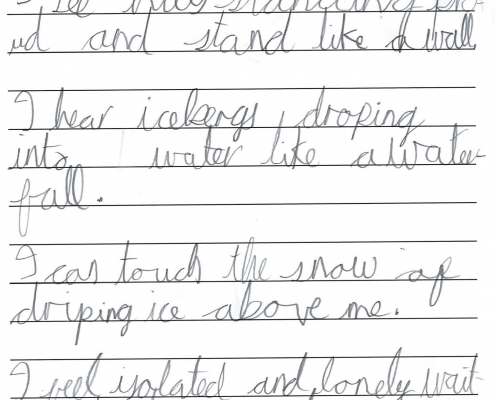 I see hills standing pro-
ud and stand like a wall
I hear icebergs, droping
into water like a water-
fall.
I can touch the snow of
driping ice above me.
I feel isolated and lonely wait-